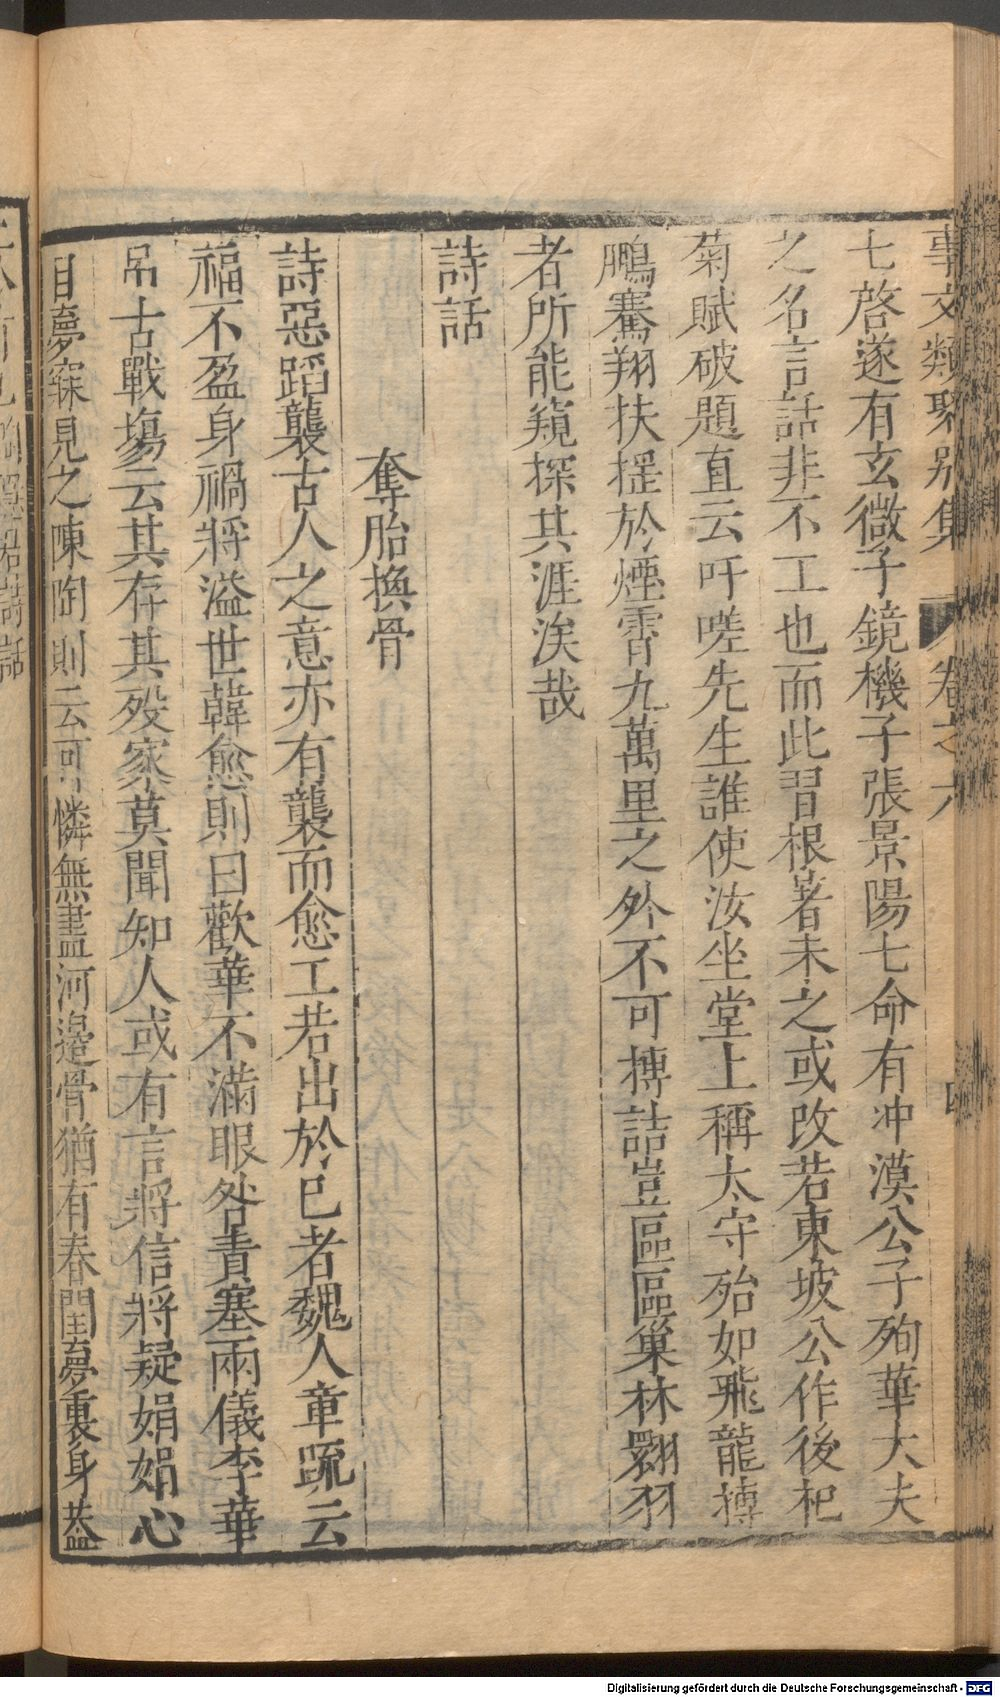 事文類聚別集 卷之六 四
七啓遂有玄微子鏡機子張景陽七命有冲漠公子殉華大夫
之名言話非不工也而此習根著未之或改若東坡公作後杞
菊賦破題直云吁嗟先生誰使汝坐堂上稱太守殆如飛龍摶
鵬騫翔扶揺於煙霄九萬里之外不可摶詰豈區區巢林翾羽
者所能窺探其涯涘哉
詩話
奪胎換骨
詩惡蹈襲古人之意亦有襲而愈工若出於己者魏人章疏云
福不盈身禍將溢世韓愈則曰歡華不滿眼咎責塞兩儀李華
吊古戰塲云其存其殁家莫聞知人或有言將信將疑娟娟心
目夢寐見之陳陶則云可憐無盡河邊骨猶有春閨夢裏身葢
Digitalisierung gefördert durch die Deutsche Forschungsgemeinschaft - DFG